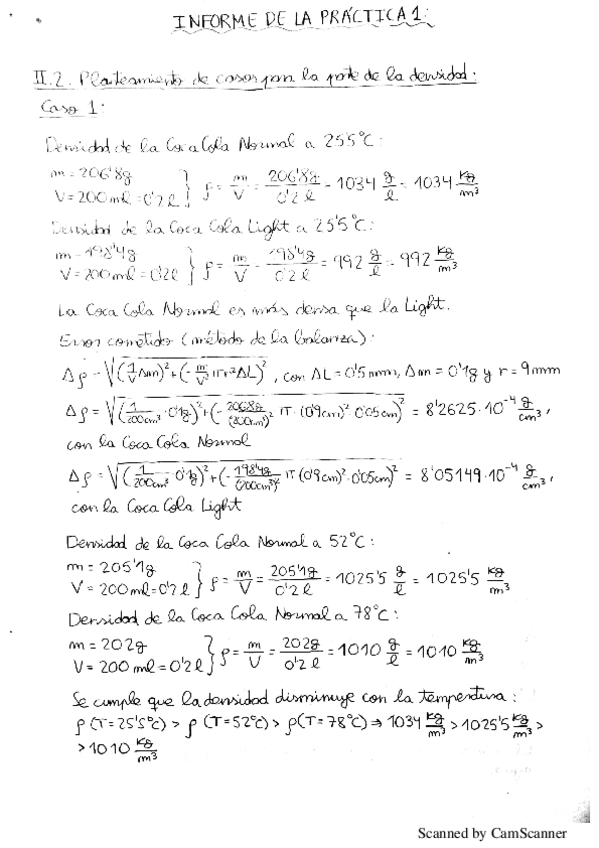 INFORME DE LA PRÁCTICA 1:
II.2. Planteamiento de casos para la parte de la densidad:
Caso 1:
Densidad de la Coca Cola Normal a 25'5°C:
m = 206'8g
V = 200 ml = 0'2 l } ρ = m/V = 206'8g/0'2 l = 1034 g/l = 1034 Kg/m³
Densidad de la Coca Cola Light a 25'5°C:
m = 198'4g
V = 200 ml = 0'2 l } ρ = m/V = 198'4g/0'2 l = 992 g/l = 992 Kg/m³
La Coca Cola Normal es más densa que la Light.
Error cometido (método de la balanza):
Δρ = √(1/V Δm)² + (- m/V² π r² ΔL)², con ΔL = 0'5 mm, Δm = 0'1g y r = 9mm
Δρ = √(1/200cm³ · 0'1g)² + (- 206'8g/(200cm³)² π · (0'9cm)² · 0'05cm)² = 8'2625·10⁻⁴ g/cm³,
con la Coca Cola Normal
Δρ = √(1/200cm³ · 0'1g)² + (- 198'4g/(200cm³)² π (0'9cm)² · 0'05cm)² = 8'05149·10⁻⁴ g/cm³,
con la Coca Cola Light
Densidad de la Coca Cola Normal a 52°C:
m = 205'1g
V = 200 ml = 0'2 l } ρ = m/V = 205'1g/0'2 l = 1025'5 g/l = 1025'5 Kg/m³
Densidad de la Coca Cola Normal a 78°C:
m = 202g
V = 200 ml = 0'2 l } ρ = m/V = 202g/0'2 l = 1010 g/l = 1010 Kg/m³
Se cumple que la densidad disminuye con la temperatura:
ρ (T=25'5°C) > ρ (T=52°C) > ρ(T=78°C) ⇒ 1034 Kg/m³ > 1025'5 Kg/m³ >
> 1010 Kg/m³
Scanned by CamScanner